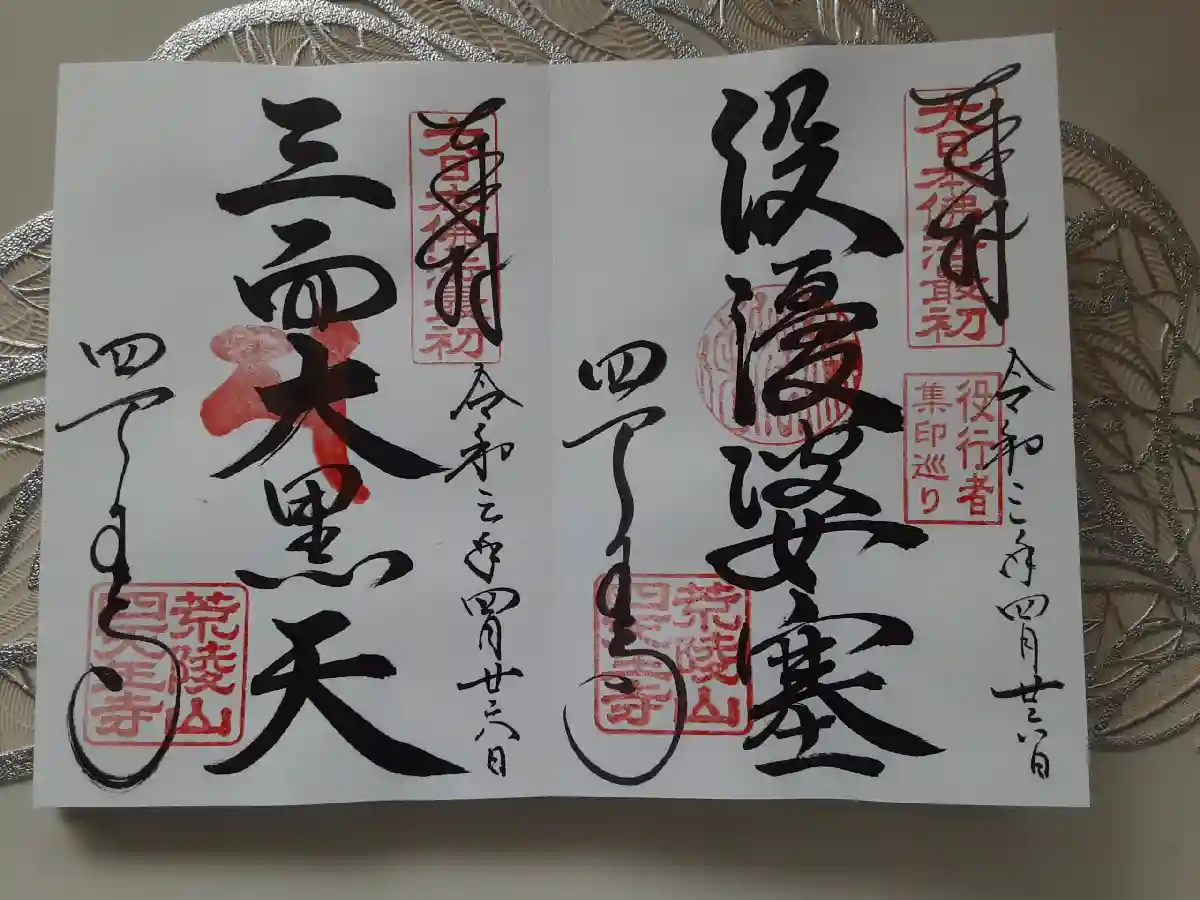 奉拝
大日本佛法最初
令和三年四月廿六日
役行者
集印巡り
役優婆塞
四天王寺
荒陵山
四天王寺
奉拝
大日本佛法最初
令和三年四月廿六日
三面大黒天
四天王寺
荒陵山
四天王寺